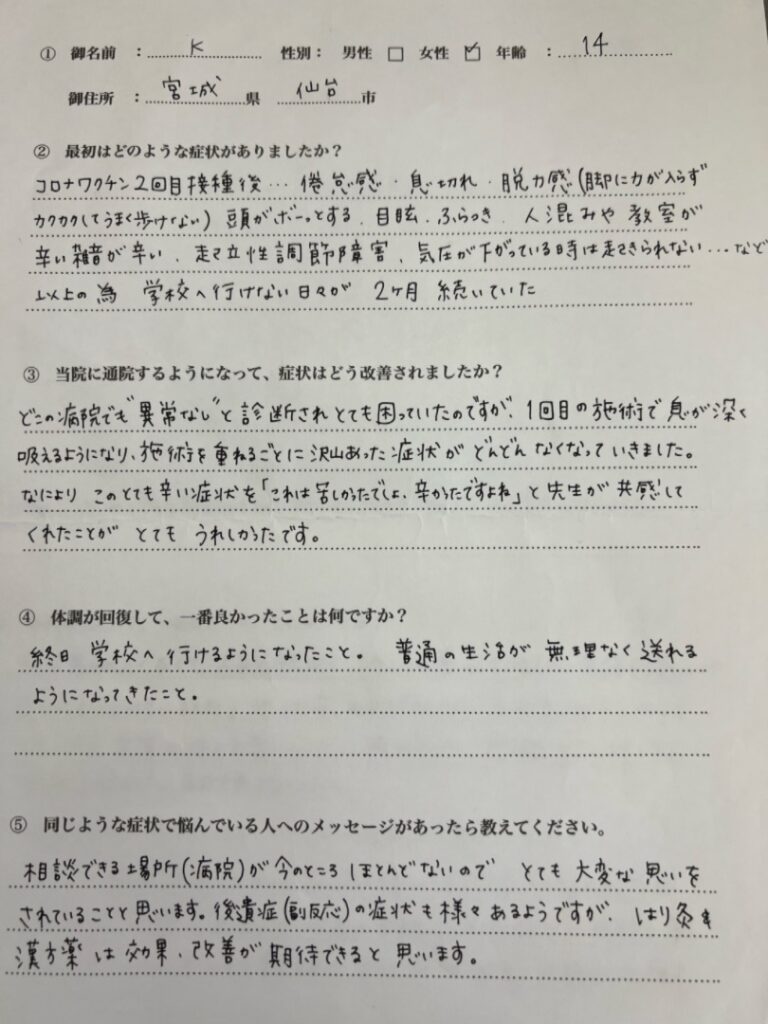 ① 御名前 : K 性別: 男性 □ 女性 ☑ 年齢 : 14
御住所 : 宮城 県 仙台 市
② 最初はどのような症状がありましたか？
コロナワクチン2回目接種後… 倦怠感・息切れ・脱力感(脚に力が入らず
カクカクしてうまく歩けない) 頭がボーっとする、目眩、ふらつき、人混みや教室が
辛い雑音が辛い、起立性調節障害、気圧が下がっている時は起きられない…など
以上の為 学校へ行けない日々が 2ヶ月 続いていた
③ 当院に通院するようになって、症状はどう改善されましたか？
どこの病院でも"異常なし"と診断されとても困っていたのですが、1回目の施術で息が深く
吸えるようになり、施術を重ねるごとに沢山あった症状がどんどんなくなっていきました。
なにより このとても辛い症状を「これは苦しかったでしょ、辛かったですよね」と先生が共感して
くれたことが とても うれしかったです。
④ 体調が回復して、一番良かったことは何ですか？
終日 学校へ 行けるようになったこと。 普通の生活が 無理なく送れる
ようになってきたこと。
⑤ 同じような症状で悩んでいる人へのメッセージがあったら教えてください。
相談できる場所(病院)が今のところ ほとんどないので とても 大変な 思いを
されていることと思います。後遺症(副反応)の症状も様々あるようですが、はり灸や
漢方薬は効果、改善が期待できると 思います。